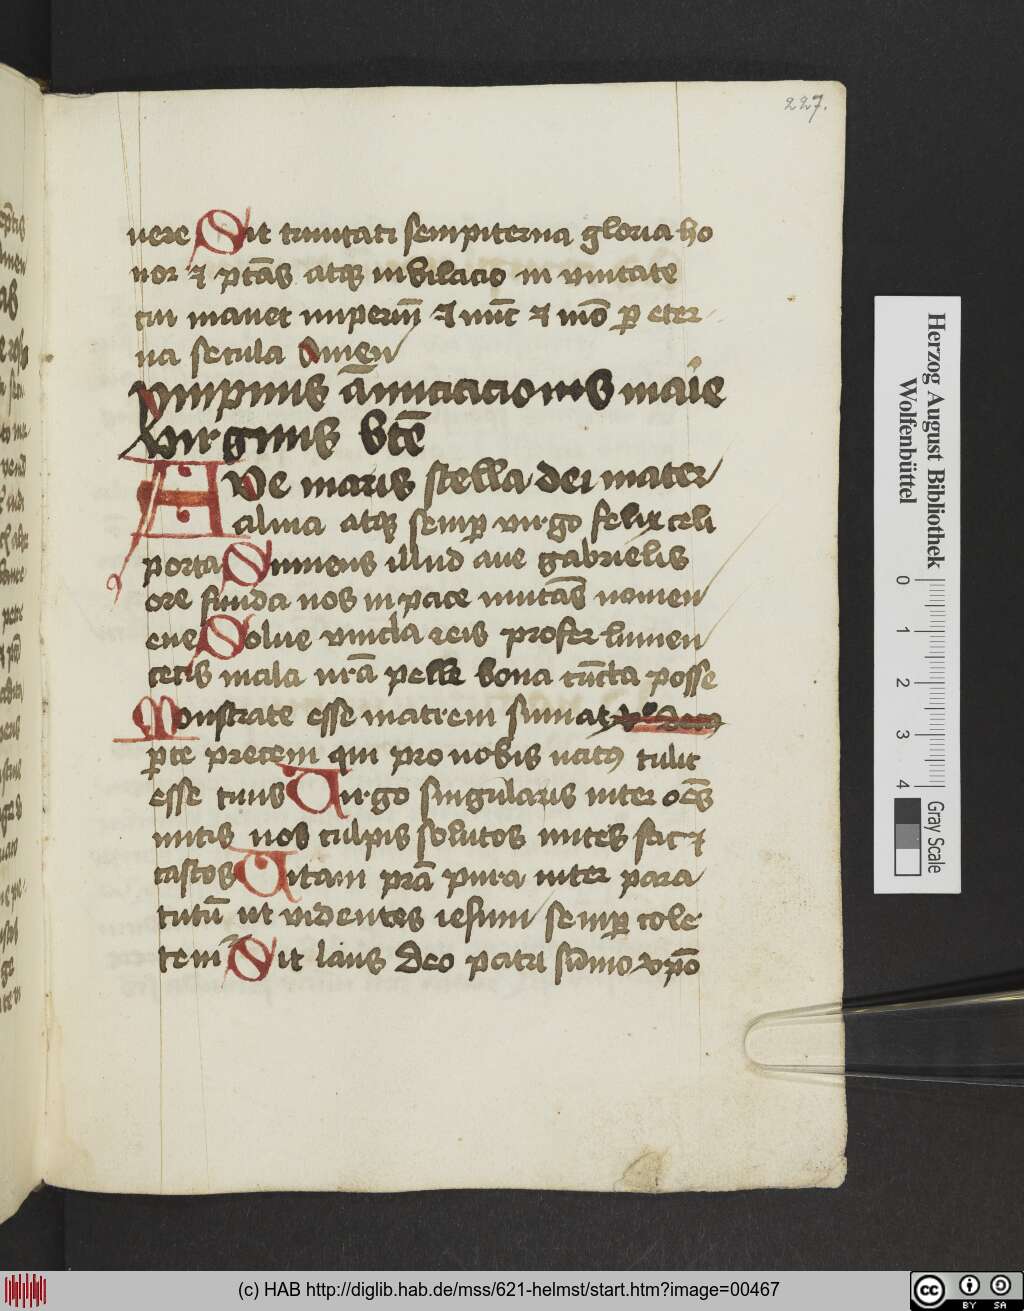 227.
uere Sit trinitati sempiterna gloria ho
nor ⁊ ptās atqꝫ iubilacio in vnitate
cui manet imperiū ⁊ nūc ⁊ mō ꝑ eter
na secula Amen
ympnus ānūciacionis maīe
virginis btē
AVe maris stella dei mater
alma atqꝫ semꝑ virgo felix celi
porta Sumens illud aue gabrielis
ore funda nos in pace mutās nomen
eue Solue vincla reis profer lumen
cecis mala nrā pelle bona cūcta posse
Monstrate esse matrem sumat
ꝑ te precem qui pro nobis natꝰ tulit
esse tuus Uirgo singularis inter oēs
mitis nos culpis solutos mites fac ⁊
castos Uitam prā pura inter para
tutū ut videntes iesum semꝑ cole
temꝰ Sit laus deo patri sūmo xpō
Herzog August Bibliothek
Wolfenbüttel
0 1 2 3 4
Gray Scale
(c) HAB http://diglib.hab.de/mss/621-helmst/start.htm?image=00467
cc BY SA